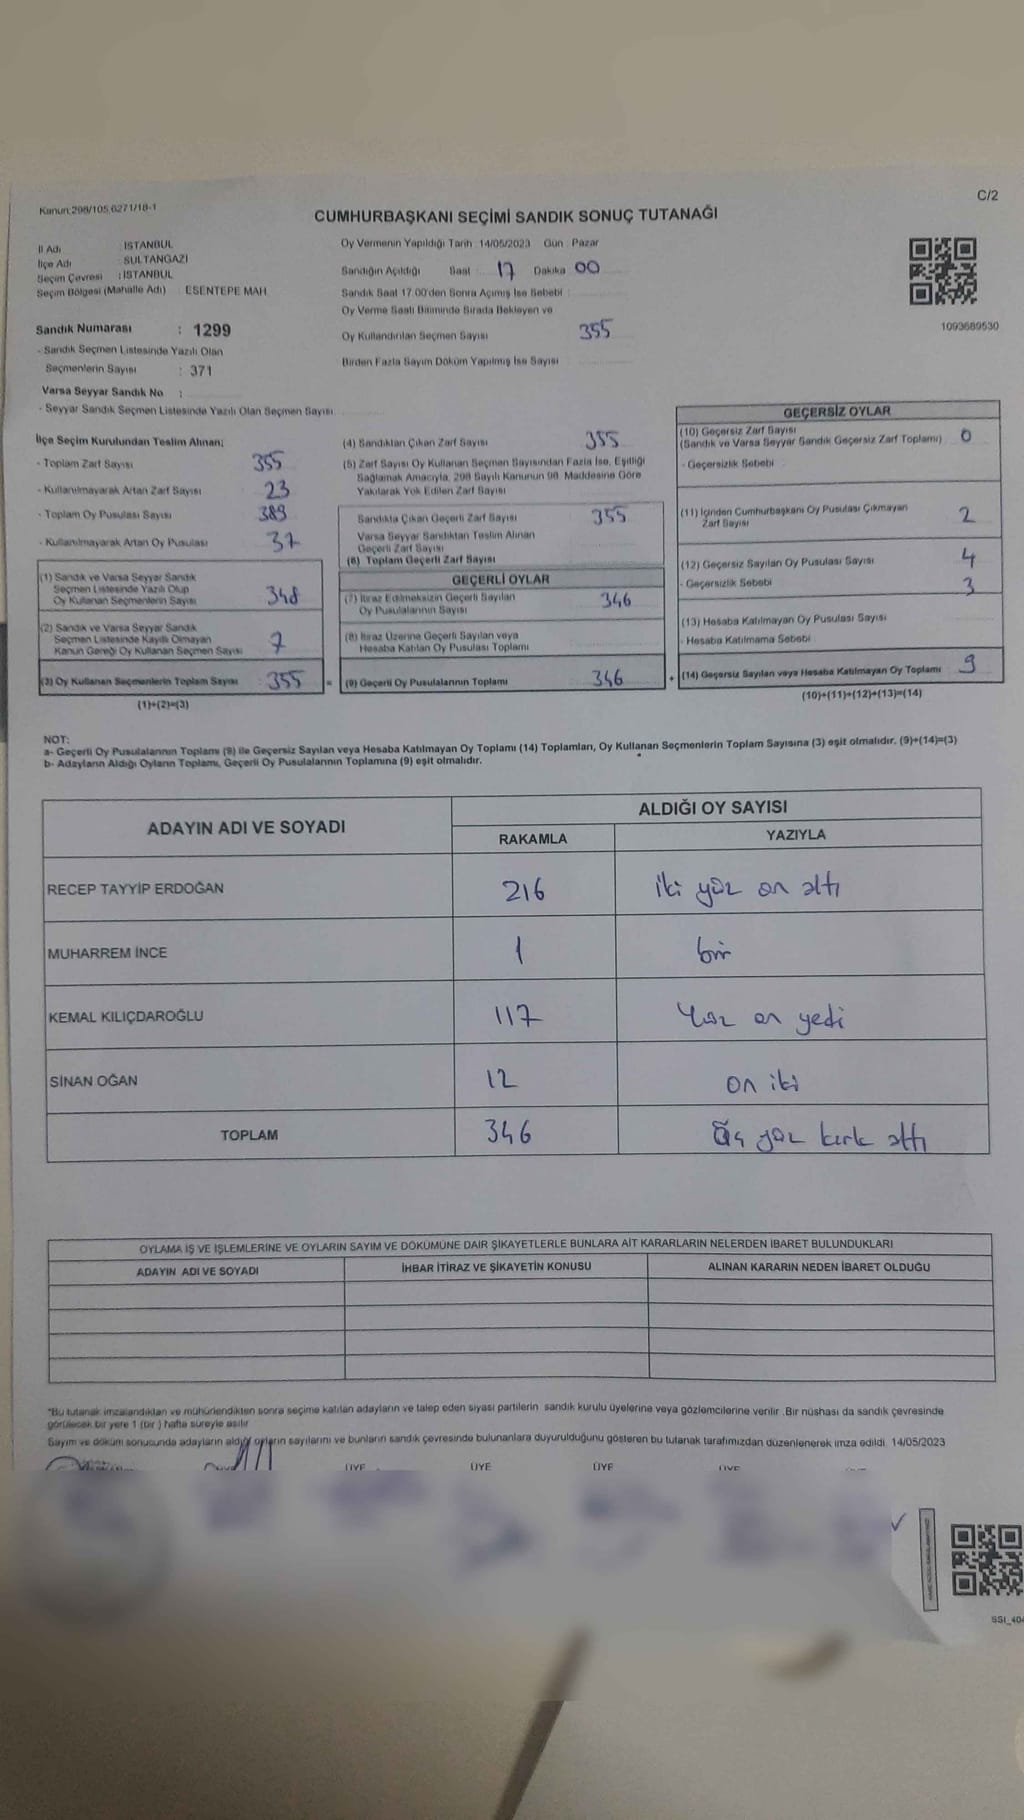 Kanun:298/105,6271/18-1
C/2
CUMHURBAŞKANI SEÇİMİ SANDIK SONUÇ TUTANAĞI
İl Adı : İSTANBUL
İlçe Adı : SULTANGAZİ
Seçim Çevresi : İSTANBUL
Seçim Bölgesi (Mahalle Adı) : ESENTEPE MAH.
Sandık Numarası : 1299
- Sandık Seçmen Listesinde Yazılı Olan
Seçmenlerin Sayısı : 371
Varsa Seyyar Sandık No :
- Seyyar Sandık Seçmen Listesinde Yazılı Olan Seçmen Sayısı
Oy Vermenin Yapıldığı Tarih : 14/05/2023 Gün : Pazar
Sandığın Açıldığı Saat : 17 Dakika 00
Sandık Saat 17.00'den Sonra Açılmış İse Sebebi :
Oy Verme Saati Bitiminde Sırada Bekleyen ve
Oy Kullandırılan Seçmen Sayısı 355
Birden Fazla Sayım Döküm Yapılmış İse Sayısı
1093689530
İlçe Seçim Kurulundan Teslim Alınan;
- Toplam Zarf Sayısı 355
- Kullanılmayarak Artan Zarf Sayısı 23
- Toplam Oy Pusulası Sayısı 389
- Kullanılmayarak Artan Oy Pusulası 37
(1) Sandık ve Varsa Seyyar Sandık
Seçmen Listesinde Yazılı Olup
Oy Kullanan Seçmenlerin Sayısı 348
(2) Sandık ve Varsa Seyyar Sandık
Seçmen Listesinde Kayıtlı Olmayan
Kanun Gereği Oy Kullanan Seçmen Sayısı 7
(3) Oy Kullanan Seçmenlerin Toplam Sayısı 355 =
(1)+(2)=(3)
(4) Sandıktan Çıkan Zarf Sayısı 355
(5) Zarf Sayısı Oy Kullanan Seçmen Sayısından Fazla İse, Eşitliği
Sağlamak Amacıyla, 298 Sayılı Kanunun 98. Maddesine Göre
Yakılarak Yok Edilen Zarf Sayısı
Sandıkta Çıkan Geçerli Zarf Sayısı 355
Varsa Seyyar Sandıktan Teslim Alınan
Geçerli Zarf Sayısı
(6) Toplam Geçerli Zarf Sayısı
GEÇERLİ OYLAR
(7) İtiraz Edilmeksizin Geçerli Sayılan
Oy Pusulalarının Sayısı 346
(8) İtiraz Üzerine Geçerli Sayılan veya
Hesaba Katılan Oy Pusulası Toplamı
(9) Geçerli Oy Pusulalarının Toplamı 346 +
GEÇERSİZ OYLAR
(10) Geçersiz Zarf Sayısı
(Sandık ve Varsa Seyyar Sandık Geçersiz Zarf Toplamı) 0
- Geçersizlik Sebebi
(11) İçinden Cumhurbaşkanı Oy Pusulası Çıkmayan
Zarf Sayısı 2
(12) Geçersiz Sayılan Oy Pusulası Sayısı 4
- Geçersizlik Sebebi 3
(13) Hesaba Katılmayan Oy Pusulası Sayısı
- Hesaba Katılmama Sebebi
(14) Geçersiz Sayılan veya Hesaba Katılmayan Oy Toplamı 9
(10)+(11)+(12)+(13)=(14)
NOT:
a- Geçerli Oy Pusulalarının Toplamı (9) ile Geçersiz Sayılan veya Hesaba Katılmayan Oy Toplamı (14) Toplamları, Oy Kullanan Seçmenlerin Toplam Sayısına (3) eşit olmalıdır. (9)+(14)=(3)
b- Adayların Aldığı Oyların Toplamı, Geçerli Oy Pusulalarının Toplamına (9) eşit olmalıdır.
ADAYIN ADI VE SOYADI
ALDIĞI OY SAYISI
RAKAMLA YAZIYLA
RECEP TAYYİP ERDOĞAN 216 iki yüz on altı
MUHARREM İNCE 1 bir
KEMAL KILIÇDAROĞLU 117 Yüz on yedi
SİNAN OĞAN 12 on iki
TOPLAM 346 Üç yüz kırk altı
OYLAMA İŞ VE İŞLEMLERİNE VE OYLARIN SAYIM VE DÖKÜMÜNE DAİR ŞİKAYETLERLE BUNLARA AİT KARARLARIN NELERDEN İBARET BULUNDUKLARI
ADAYIN ADI VE SOYADI İHBAR İTİRAZ VE ŞİKAYETİN KONUSU ALINAN KARARIN NEDEN İBARET OLDUĞU
*Bu tutanak imzalandıktan ve mühürlendikten sonra seçime katılan adayların ve talep eden siyasi partilerin sandık kurulu üyelerine veya gözlemcilerine verilir. Bir nüshası da sandık çevresinde
görülecek bir yere 1 (bir) hafta süreyle asılır
Sayım ve döküm sonucunda adayların aldığı oyların sayılarını ve bunların sandık çevresinde bulunanlara duyurulduğunu gösteren bu tutanak tarafımızdan düzenlenerek imza edildi. 14/05/2023
ÜYE ÜYE ÜYE ÜYE